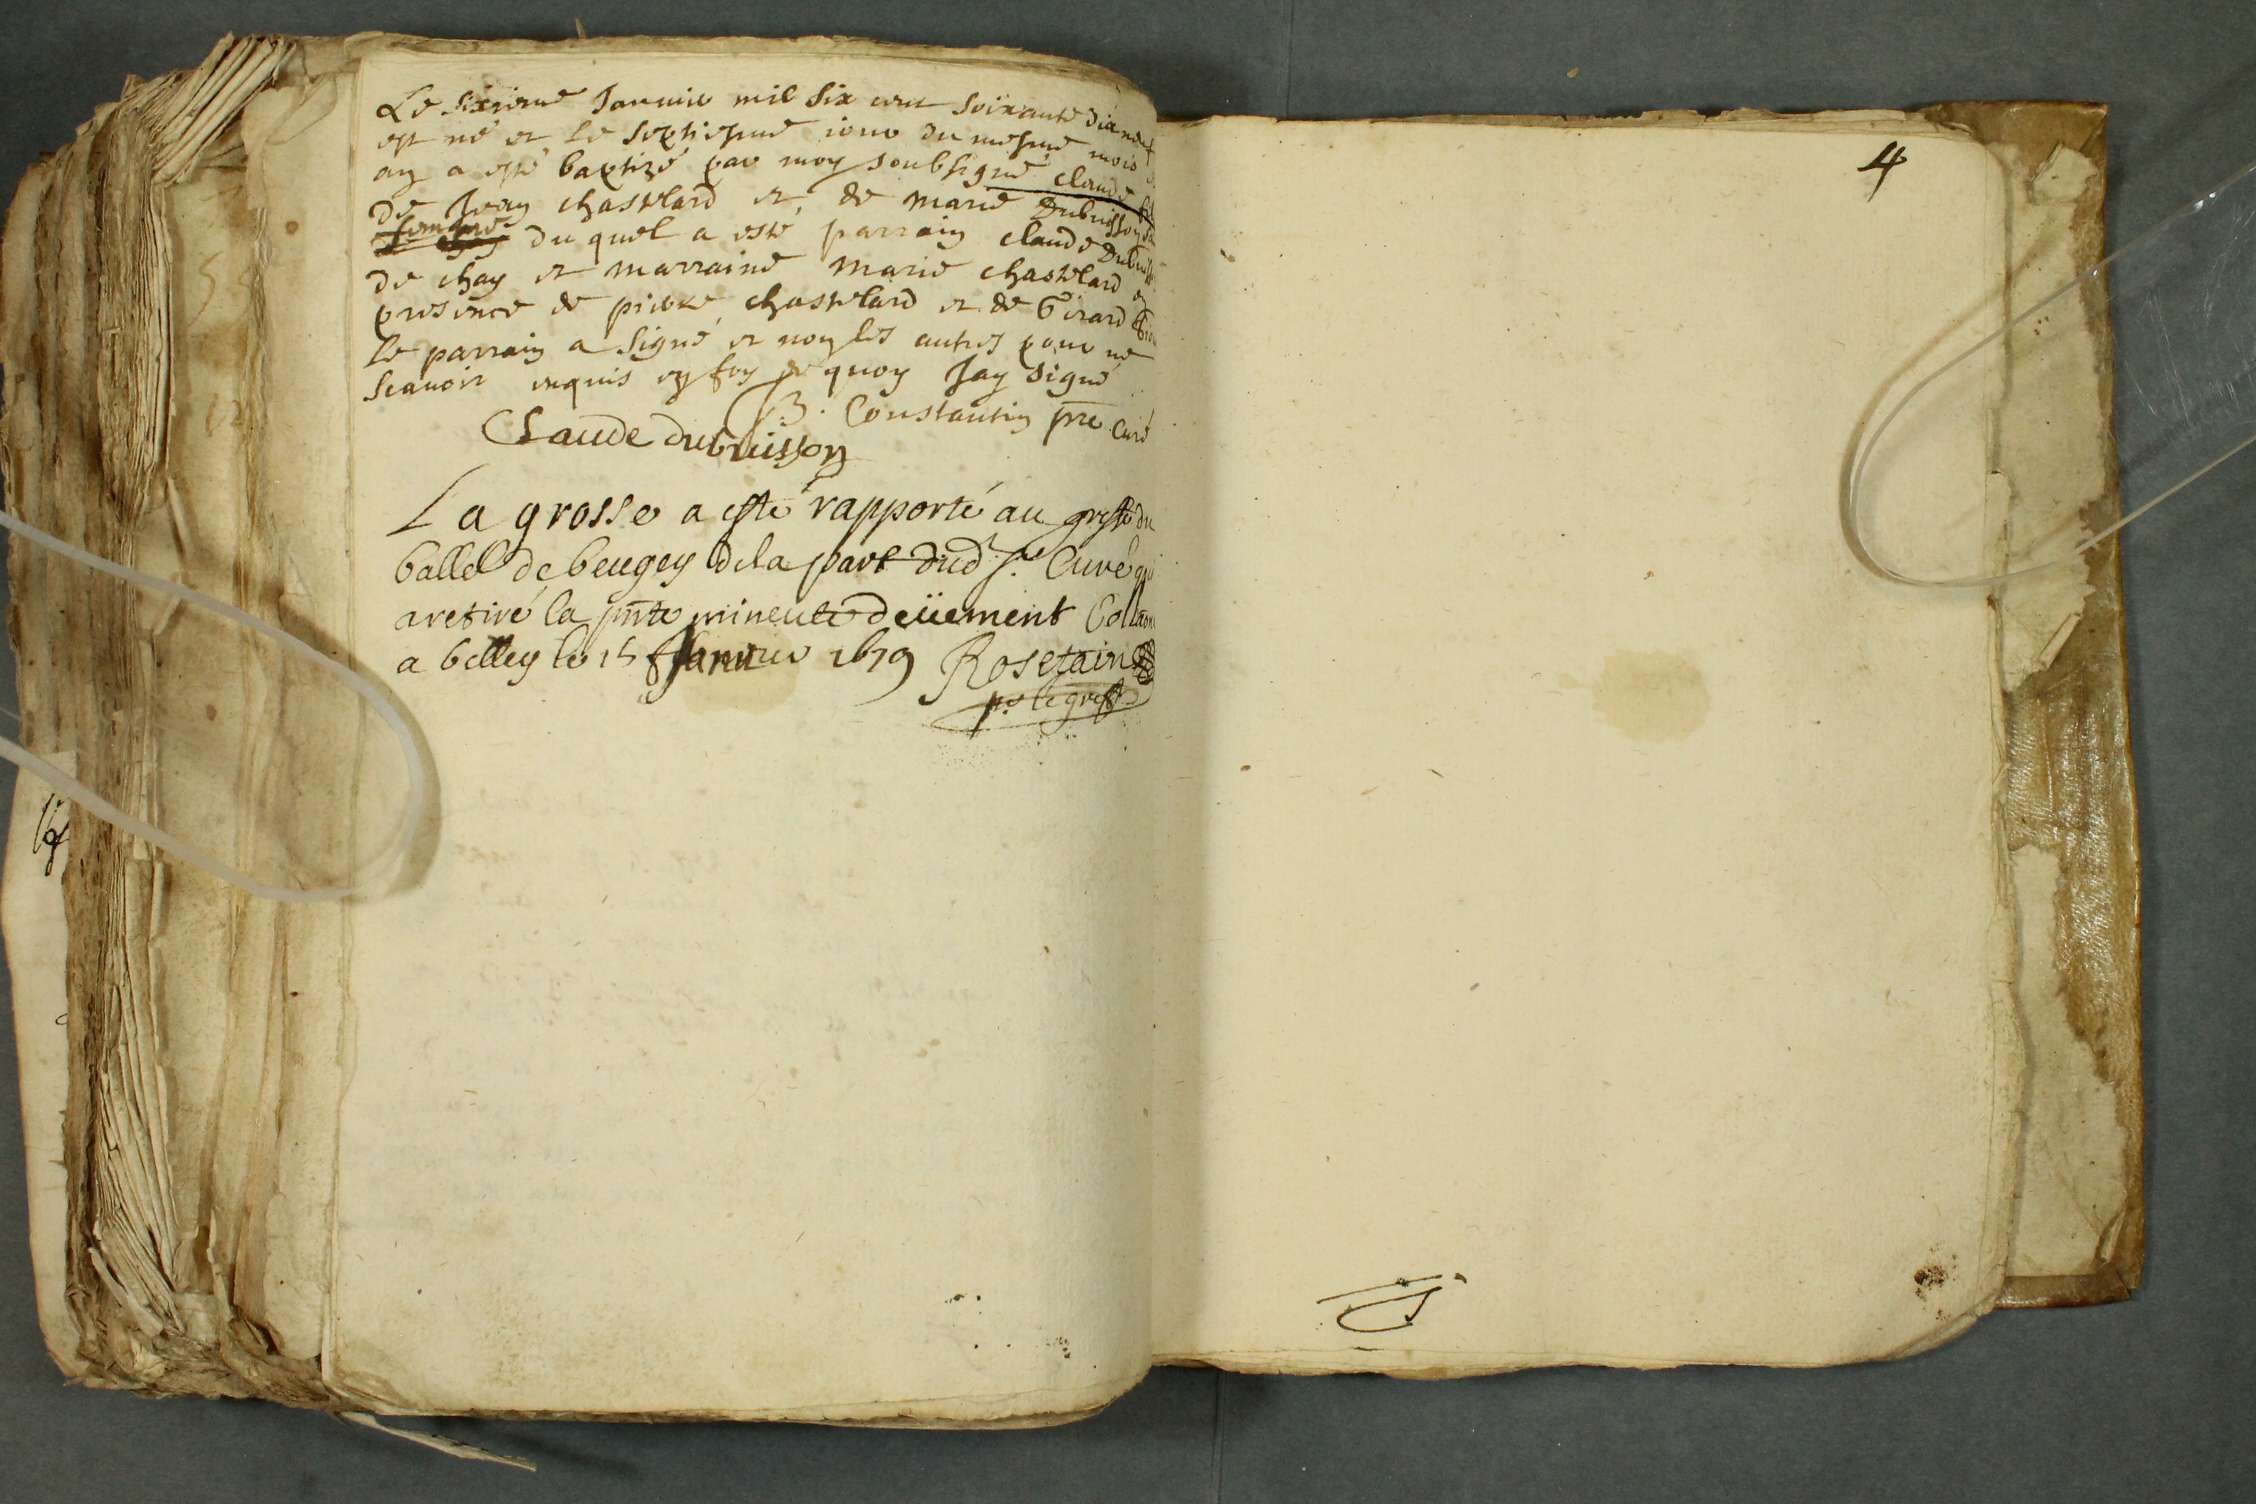 Le sixieme Januier mil six cent soixante dix neuf
est né et le septiesme iour du mesme mois
an a esté baptizé par moy soubsigné claude
de Jean chastelard et de marie Dubuisson
femme du quel a esté parrain claude Dubuiss
de chay et marraine marie chastelard en
presence de pierre chastelard et de Girard
le parrain a signé et non les autres pour ne
scauoir enquis en foy de quoy Jay signé
B. Constantin pre curé
Claude dubuisson
La grosse a esté rapporté au greffe du
balle de beugey de la part dud sr Curé qui
a retiré la pnte mineute deüement Colla
a belley le 15 Januier 1679 Rosetain
pr le greff
4